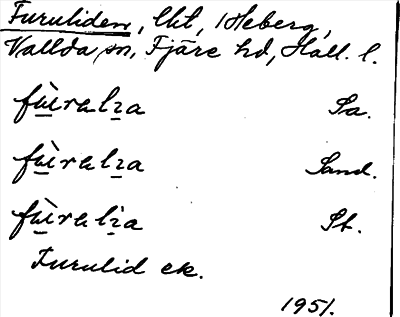 Furuliden, lht, Heberg,
Vallda sn, Fjäre hd, Hall. l.
fùralıa Sa.
fùralıa Sand.
fùralıa St.
Furulid ek.
1951.